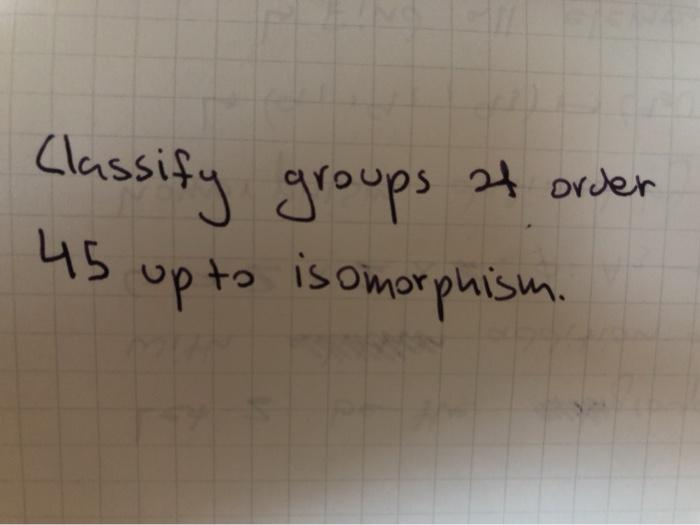 Classify groups of order
45 up to isomorphism.